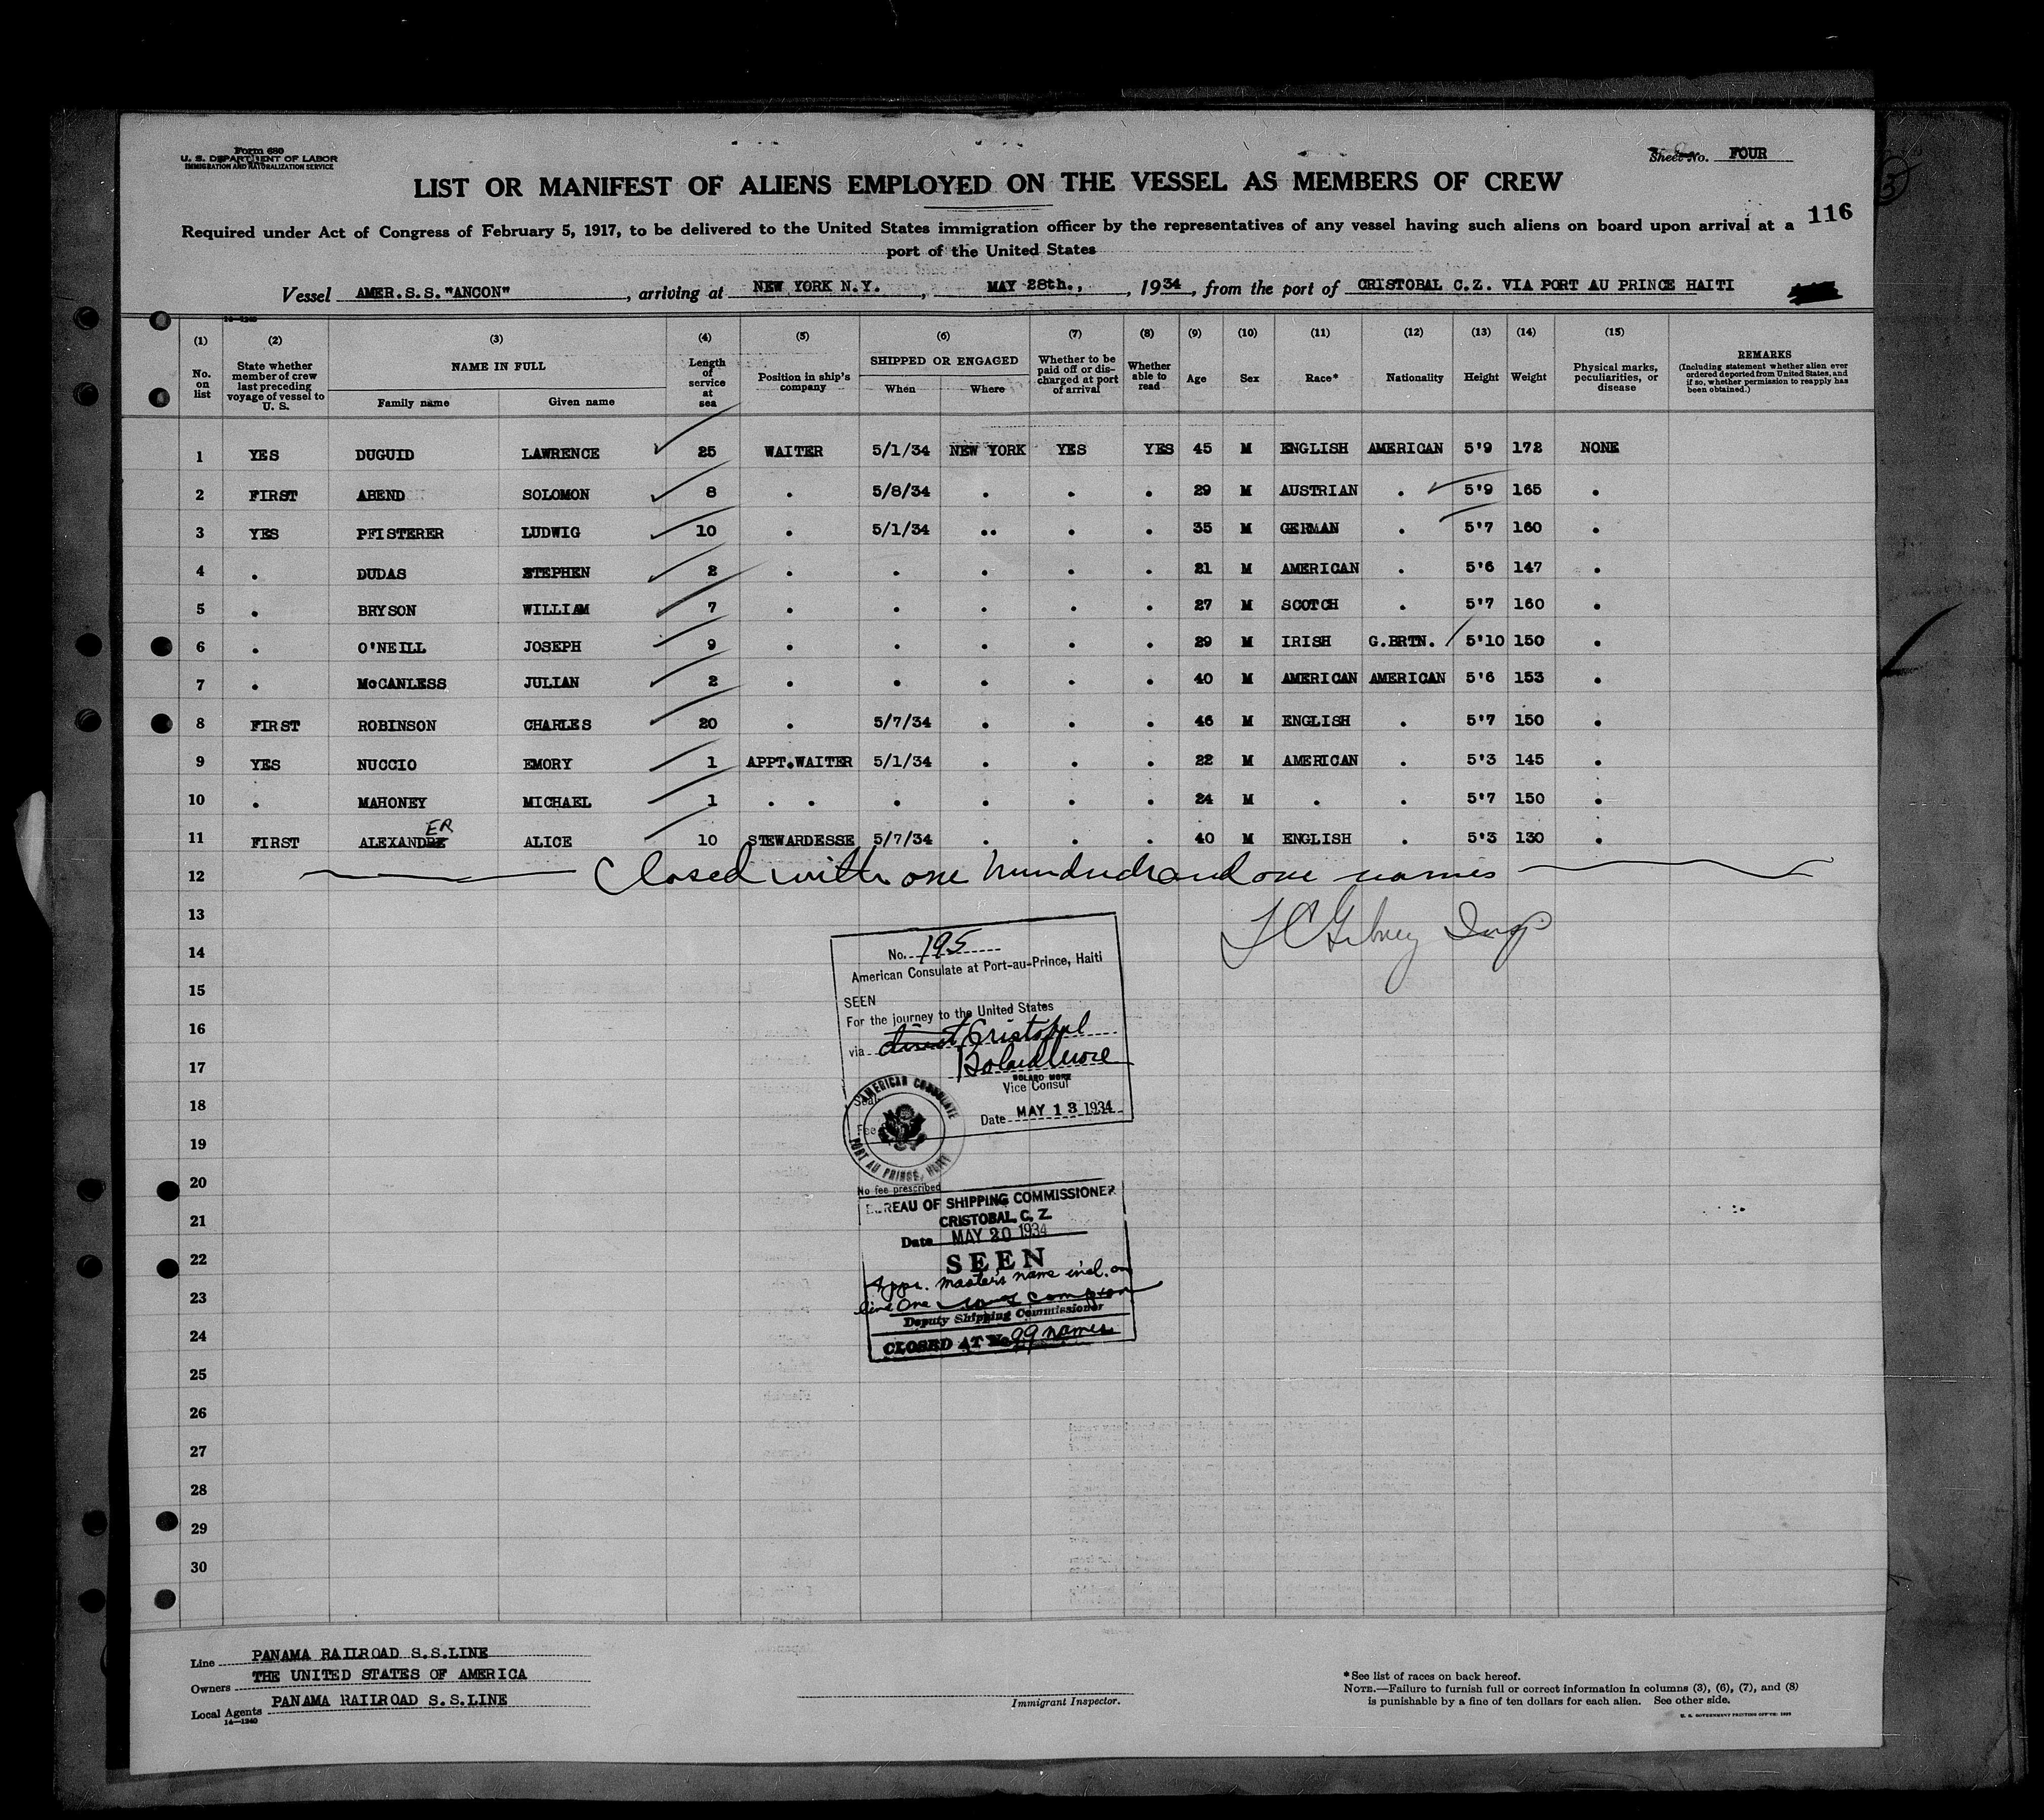 Form 680
U. S. DEPARTMENT OF LABOR
IMMIGRATION AND NATURALIZATION SERVICE
Sheet No. FOUR
LIST OR MANIFEST OF ALIENS EMPLOYED ON THE VESSEL AS MEMBERS OF CREW
116
Required under Act of Congress of February 5, 1917, to be delivered to the United States immigration officer by the representatives of any vessel having such aliens on board upon arrival at a
port of the United States
Vessel AMER.S.S."ANCON", arriving at NEW YORK N.Y., MAY 28th., , 1934, from the port of CRISTOBAL C.Z. VIA PORT AU PRINCE HAITI
14—1240
(1) (2) (3) (4) (5) (6) (7) (8) (9) (10) (11) (12) (13) (14) (15)
No. on list State whether member of crew last preceding voyage of vessel to U. S. NAME IN FULL Family name Given name Length of service at sea Position in ship's company SHIPPED OR ENGAGED When Where Whether to be paid off or discharged at port of arrival Whether able to read Age Sex Race* Nationality Height Weight Physical marks, peculiarities, or disease REMARKS (Including statement whether alien ever ordered deported from United States, and if so, whether permission to reapply has been obtained.)
1 YES DUGUID LAWRENCE 25 WAITER 5/1/34 NEW YORK YES YES 45 M ENGLISH AMERICAN 5'9 172 NONE
2 FIRST ABEND SOLOMON 8 . 5/8/34 . . . 29 M AUSTRIAN . 5'9 165 .
3 YES PFISTERER LUDWIG 10 . 5/1/34 .. . . 35 M GERMAN . 5'7 160 .
4 . DUDAS STEPHEN 2 . . . . . 21 M AMERICAN . 5'6 147 .
5 . BRYSON WILLIAM 7 . . . . . 27 M SCOTCH . 5'7 160 .
6 . O'NEILL JOSEPH 9 . . . . . 29 M IRISH G.BRTN. 5'10 150 .
7 . McCANLESS JULIAN 2 . . . . . 40 M AMERICAN AMERICAN 5'6 153 .
8 FIRST ROBINSON CHARLES 20 . 5/7/34 . . . 46 M ENGLISH . 5'7 150 .
9 YES NUCCIO EMORY 1 APPT.WAITER 5/1/34 . . . 22 M AMERICAN . 5'3 145 .
10 . MAHONEY MICHAEL 1 . . . . . . 24 M . . 5'7 150 .
ER
11 FIRST ALEXANDRE ALICE 10 STEWARDESSE 5/7/34 . . . 40 M ENGLISH . 5'3 130 .
12 Closed with one hundred and one names
13
14
15
16
17
18
19
20
21
22
23
24
25
26
27
28
29
30
No. 195
American Consulate at Port-au-Prince, Haiti
SEEN
For the journey to the United States
via direct Cristobal
Bolard More
BOLARD MORE
Vice Consul
Seal
Date MAY 13 1934
Fee
AMERICAN CONSULATE
PORT AU PRINCE, HAITI
No fee prescribed
BUREAU OF SHIPPING COMMISSIONER
CRISTOBAL, C. Z.
Date MAY 20 1934
SEEN
master's name incl. on
line One
Deputy Shipping Commissioner
CLOSED AT No 99 names
Line PANAMA RAILROAD S.S.LINE
Owners THE UNITED STATES OF AMERICA
Local Agents PANAMA RAILROAD S.S.LINE
14—1240
Immigrant Inspector.
*See list of races on back hereof.
NOTE.—Failure to furnish full or correct information in columns (3), (6), (7), and (8)
is punishable by a fine of ten dollars for each alien. See other side.